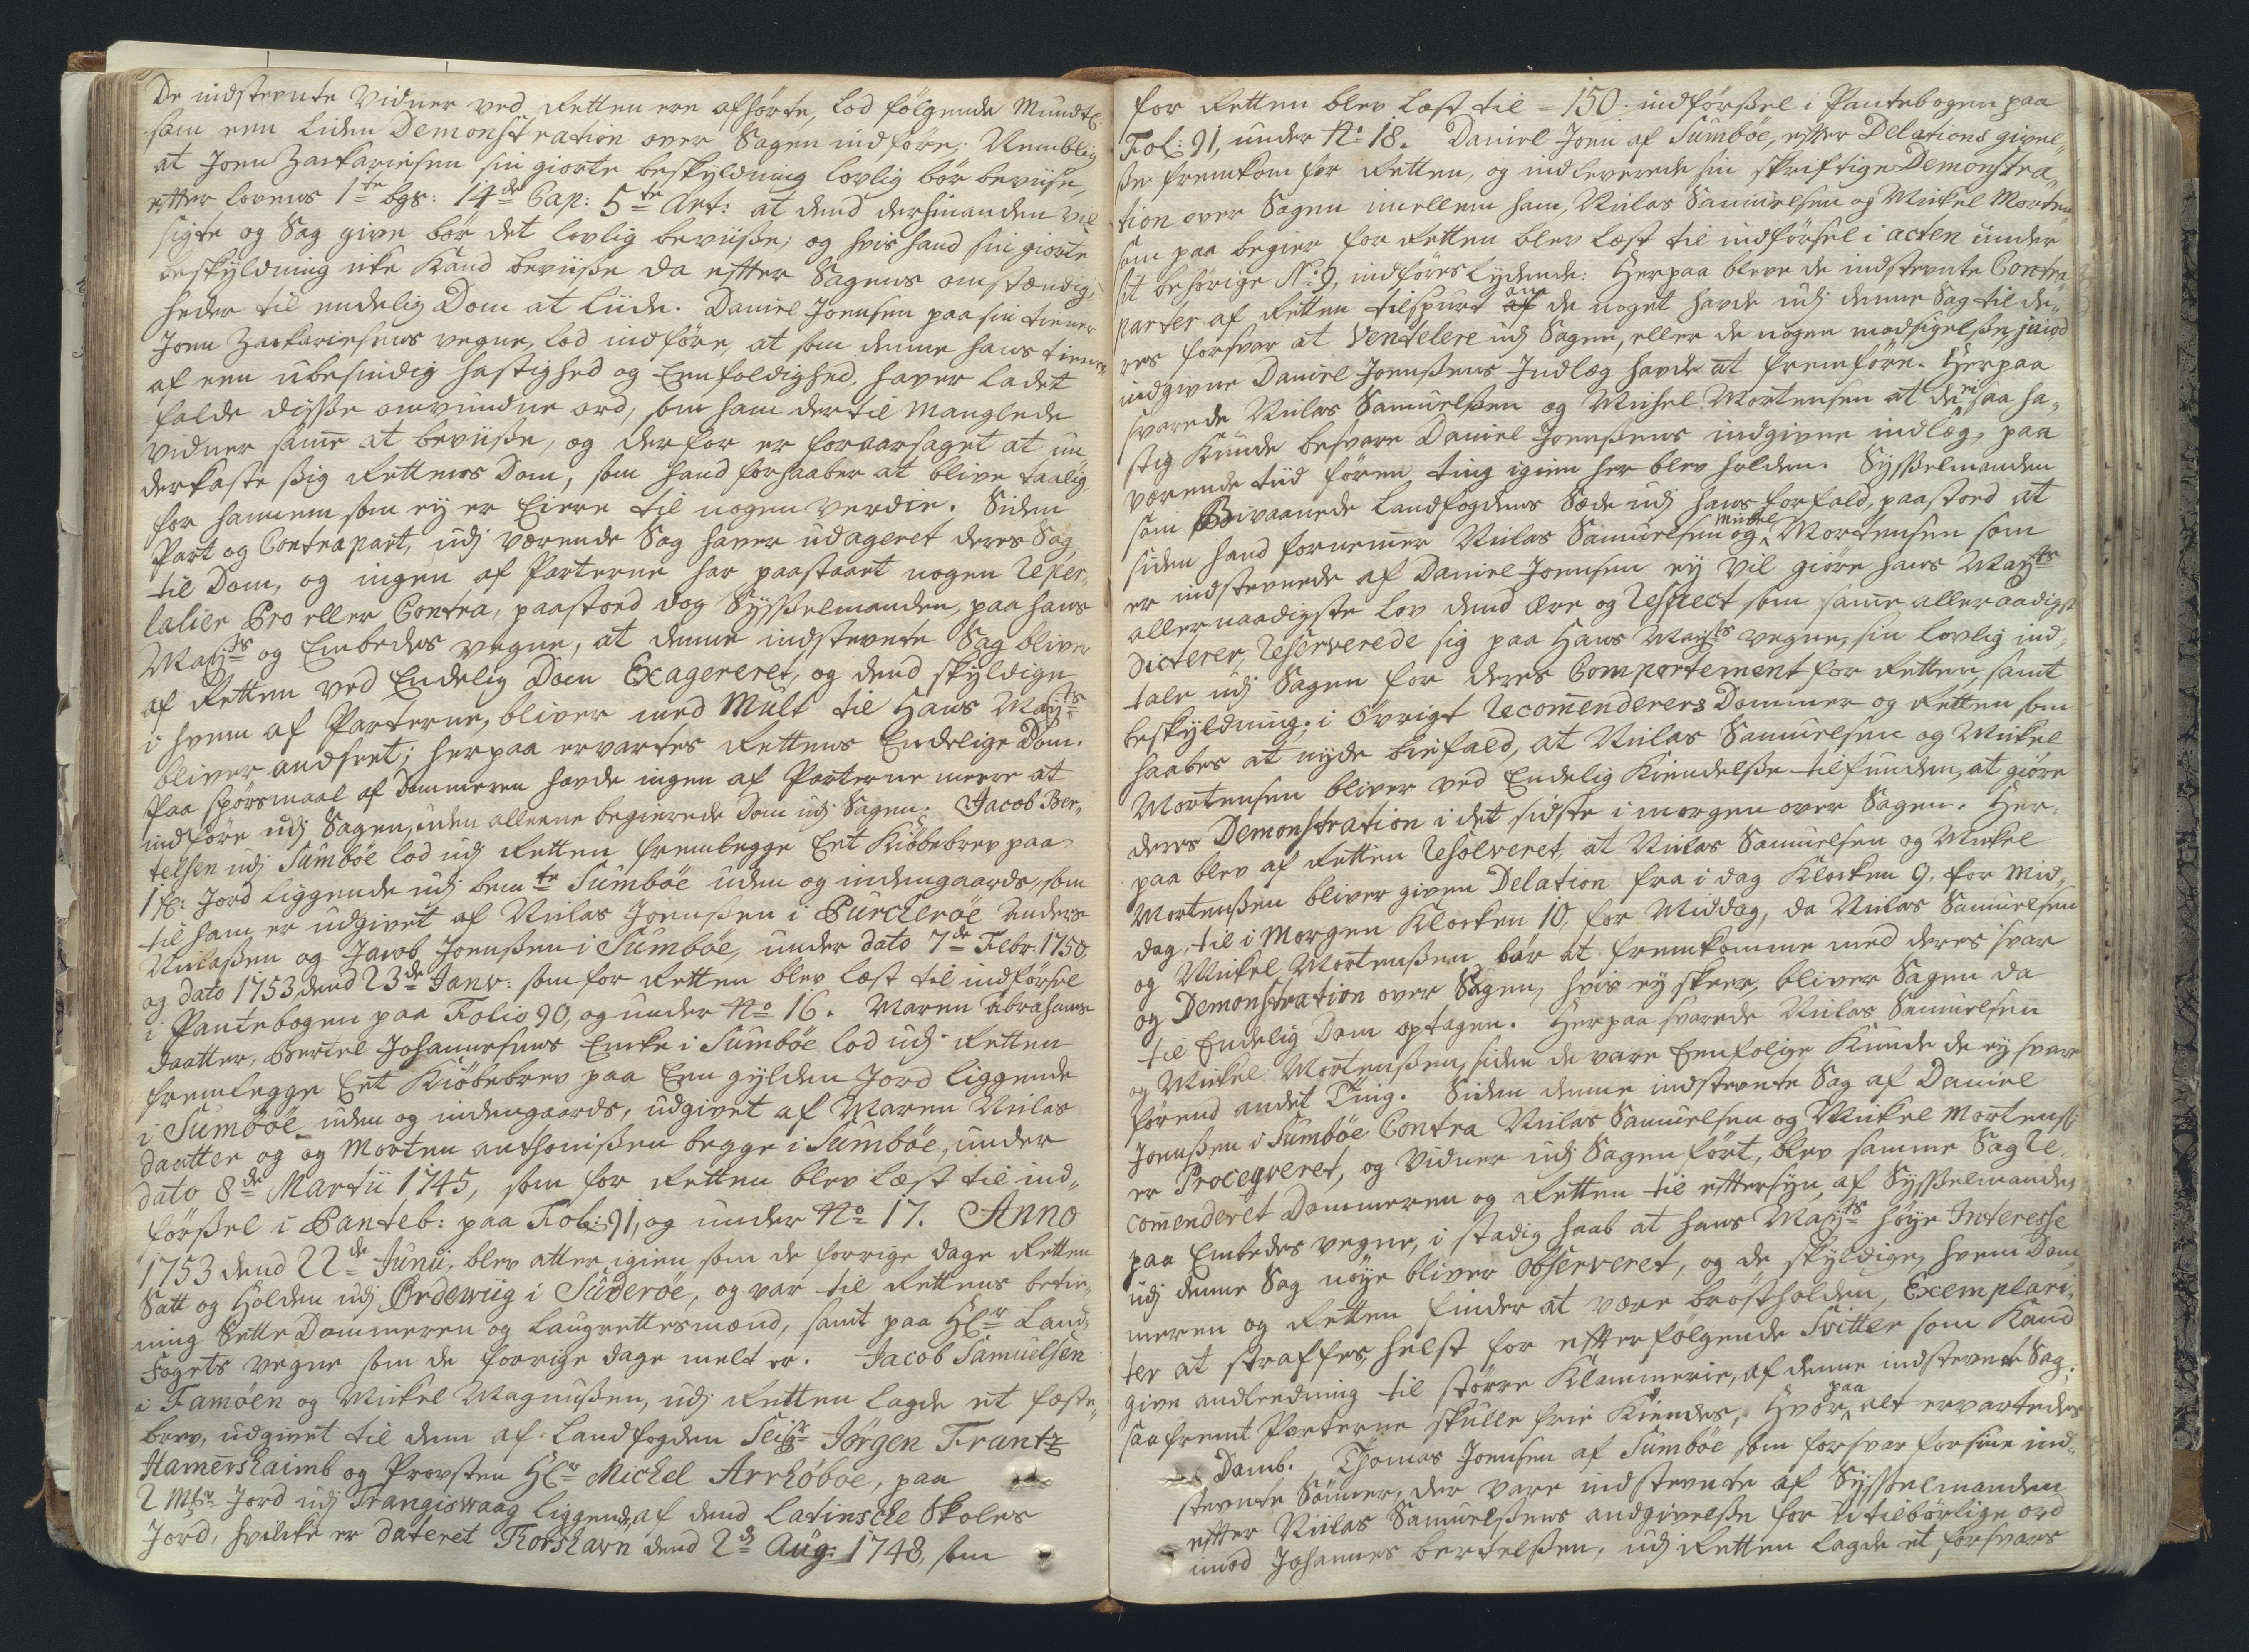 De indstevnte Vidner ved Retten ere afhörte, lod følgende Mundtl:
som een liden Demonstration over Sagen indföre; Nemblig
at Joen Zackariesen sin giorte beskyldning lovlig bör beviise,
efter lovens 1te bgs: 14de Cap: 5te Art: at dend der hinanden vil
sigte og Sag give bör det lovlig beviisse; og hvis hand sin giorte
beskyldning icke Kand beviisse da efter Sagens omstændig„
heder til endelig Dom at liide. Daniel Joensen paa sin tiener
Joen Zackariesens vegne, lod indföre, at som denne hans tiener
af een ubesindig hastighed og Eenfoldighed, haver ladet
falde disse omvundne ord, som ham dertil manglede
vidner same at beviisse, og derfor er foraarsaget at un„
derkaste sig Rettens Dom, som hand forhaaber at blive taalig
for hannem som ey er Eiere til nogen verdie. Siden
Part og Contrapart, udj værende Sag haver udageret deres Sag,
til Dom, og ingen af Parterne har paastaaet nogen Reper„
lalier Pro eller Contra, paastoed dog Sysselmanden, paa hans
Mayts og Embedes vegne, at denne indstevnte Sag bliver
af Retten ved Endelig Dom Exagereret, og dend skyldige
i hvem af Parterne, bliver med Mult til Hans Mayts
bliver andseet; herpaa ervartes Rettens Endelige Dom.
Paa spörsmaal af Dommeren havde ingen af Parterne meere at
indföre udj Sagen, uden alleene begierede Dom udj Sagen. Jacob Ber„
telsen udj Sumböe lod udj Retten fremlegge Eet Kiöbebrev paa
1 g: Jord liggende udj bemte Sumböe uden og indengaards, som
til ham er udgivet af Niclas Joensen i Purcheröe Anders
Niclaßen og Jacob Joenßen i Sumböe, under dato 7de Febr. 1750.
og dato 1753 dend 23de Janv: som for Retten blev læst til indförsel
i Pantebogen paa Folio 90, og under No 16. Maren Abrahams
daatter, Bertel Johannesens Encke i Sumböe lod udj Retten
fremlegge Eet Kiöbebrev paa Een gylden Jord liggende
i Sumböe uden og indengaards, udgivet af Maren Niclas
daatter og og Morten anthonißen begge i Sumböe, under
dato 8de Martii 1745, som for Retten blev læst til ind„
förßel i Panteb: paa Fol: 91, og under No 17. Anno
1753 dend 22de Junii, blev atter igien som de forrige dage Retten
Satt og Holden udj Ördewiig i Süderöe, og var til Rettens betie„
ning Sette Dommeren og Laugrettesmænd, samt paa Hr Land„
Fogets vegne som de forrige dage melt er. Jacob Samuelsen
i Famöen og Mickel Magnußen, udj Retten lagde et fæste„
brev, udgivet til dem af Landfogden Seigr Jörgen Frantz
Hamershaimb og Provsten Hr Michel Arrhöboe, paa
2 Mkr Jord udj Trangiswaag liggende af dend Latinsche Skoles
Jord, hvilcke er dateret Thorshavn dend 2d Aug: 1748, som
for Retten blev læst til – 150. indförßel i Pantebogen paa
Fol: 91, under No 18. Daniel Joen af Sumböe, efter Delations givel„
ße fremkom for Retten, og indleverede sin skriftlige Demonstra„
tion over Sagen imellem ham, Niclas Samuelsen og Mickel Morten
som paa begier for Retten blev læst til indförsel i acten under
sit behörige No 9, indföres lydende: Herpaa bleve de indstevnte Contra
parter af Retten tilspurt om de noget havde udj denne Sag til de„
res forsvar at Ventelere udj Sagen, eller de nogen modsigelße imod
indgivne Daniel Joenßens Indlæg havde at fremföre. Herpaa
svarede Niclas Samuelßen og Michel Mortensen at de ei saa ha„
stig Kunde besvare Daniel Joenßens indgivne indlæg, paa
værende tiid förend ting igien her blev holden. Sysselmanden
som Bivaanede landfogdens Sæde udj hans forfald, paastoed at
siden hand fornemer Niclas Samuelsen og Mickel Mortensen som
er indstevnede af Daniel Joensen ey vil giöre hans Mayts
allernaadigste lov dend ære og Respect som same allernaadigst
Dicterer, Reserverede sig paa Hans Mayts vegne, sin lovlig ind„
tale udj Sagen for deres Comportement for Retten, samt
beskyldning; i övrigt Recomenderers Dommer og Retten som
haabes at nyde biefald, at Niclas Samuelsen og Mickel
Mortensen bliver ved Endelig Kiendelße tilfunden, at giöre
deres Demonstration i det sidste i morgen over Sagen. Her„
paa blev af Retten Resolveret, at Niclas Samuelsen og Mickel
Mortenßen bliver given Delation fra i dag Klocken 9, for Mid„
dag, til i Morgen Klocken 10, for Middag, da Niclas Samuelsen
og Mickel Mortenßen bör at fremkomme med deres svar
og Demonstration over Sagen, hvis ey skeer, bliver Sagen da
til Endelig Dom optagen. Herpaa svarede Niclas Samuelsen
og Mickel Mortenßen, siden de vare Eenfolige Kunde de ey svare
förend andet Ting. Siden denne indstevnte Sag af Daniel
Joenßen i Sumböe Contra Niclas Samuelsen og Mickel Mortensen
er Procegveret, og Vidner udj Sagen fört, blev samme Sag Re„
comenderet Dommeren og Retten til eftersyn, af Sysselmanden
paa Embedes vegne, i stadig haab at hans Mayts höye Interesse
udj denne Sag nöye bliver observeret, og de skyldige, hvem Dom„
meren og Retten finder at være bröstholden, Exemplari„
ter at straffes, helst for efterfölgende Svitter som Kand
give andleedning til större Klammerie, af denne indstevnte Sag:
saafremt Parterne skulle frie Kiendes, Hvor paa alt ervartedes
Domb. Thomas Joensen af Sumböe som forsvar for sine ind„
stevnte Sönner, der vare indstevnte af Sysselmanden
efter Niclas Samuelßens andgivelße for utilbörlige ord
imod Johannes bertelßen, udj Retten lagde et forsvars